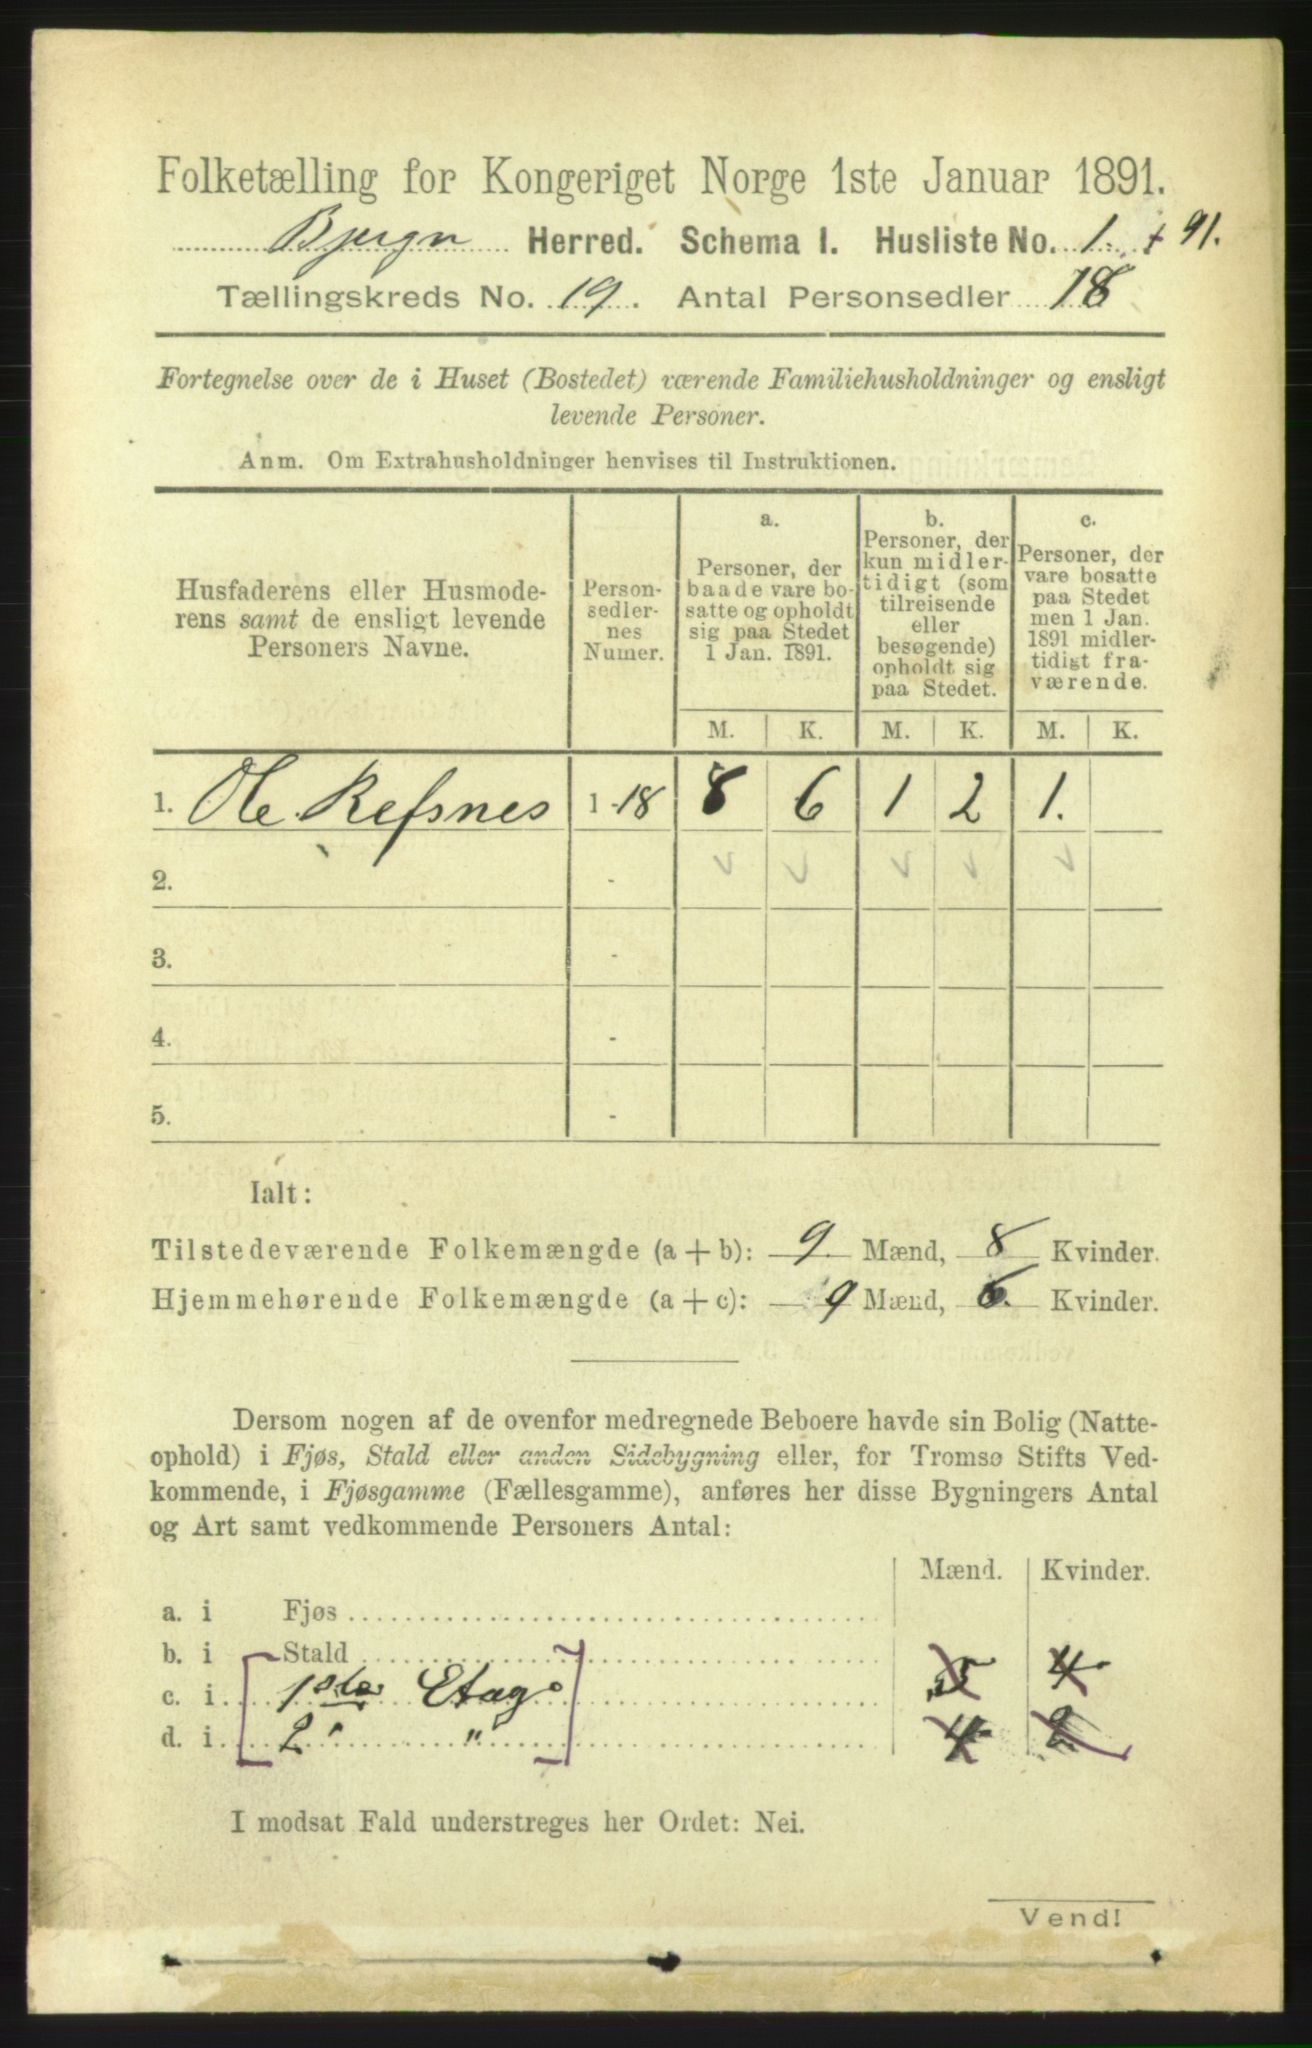 Folketælling for Kongeriget Norge 1ste Januar 1891.
Bjugn Herred. Schema I. Husliste No. 1. + 91.
Tællingskreds No. 19. Antal Personsedler 18
Fortegnelse over de i Huset (Bostedet) værende Familiehusholdninger og ensligt
levende Personer.
Anm. Om Extrahusholdninger henvises til Instruktionen.
Husfaderens eller Husmode-
rens samt de ensligt levende
Personers Navne.
Person-
sedler-
nes
Numer.
a.
Personer, der
baade vare bo-
satte og opholdt
sig paa Stedet
1 Jan. 1891.
b.
Personer, der
kun midler-
tidigt (som
tilreisende
eller
besøgende)
opholdt sig
paa Stedet.
c.
Personer, der
vare bosatte
paa Stedet
men 1 Jan.
1891 midler-
tidigt fra-
værende.
M. K. M. K. M. K.
1. Ole Refsnes 1-18 8 6 1 2 1.
2. -
3. -
4. -
5. -
Ialt:
Tilstedeværende Folkemængde (a + b): 9. Mænd, 8 Kvinder.
Hjemmehørende Folkemængde (a + c): 9 Mænd, 6. Kvinder.
Dersom nogen af de ovenfor medregnede Beboere havde sin Bolig (Natte-
ophold) i Fjøs, Stald eller anden Sidebygning eller, for Tromsø Stifts Ved-
kommende, i Fjøsgamme (Fællesgamme), anføres her disse Bygningers Antal
og Art samt vedkommende Personers Antal:
Mænd. Kvinder.
a. i Fjøs
b. i Stald
c. i 1ste Etage 5 4
d. i 2" " 4 2
I modsat Fald understreges her Ordet: Nei.
Vend!